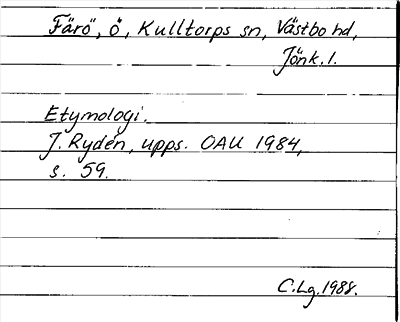 Färö, ö, Kulltorps sn, Västbo hd,
Jönk. l.
Etymologi.
J. Rydén, upps. OAU 1984,
s. 59.
C.Lg. 1988.